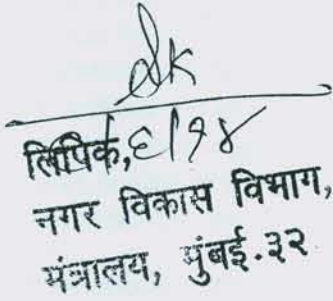 लिपिक,
६/१४
नगर विकास विभाग,
मंत्रालय, मुंबई.३२